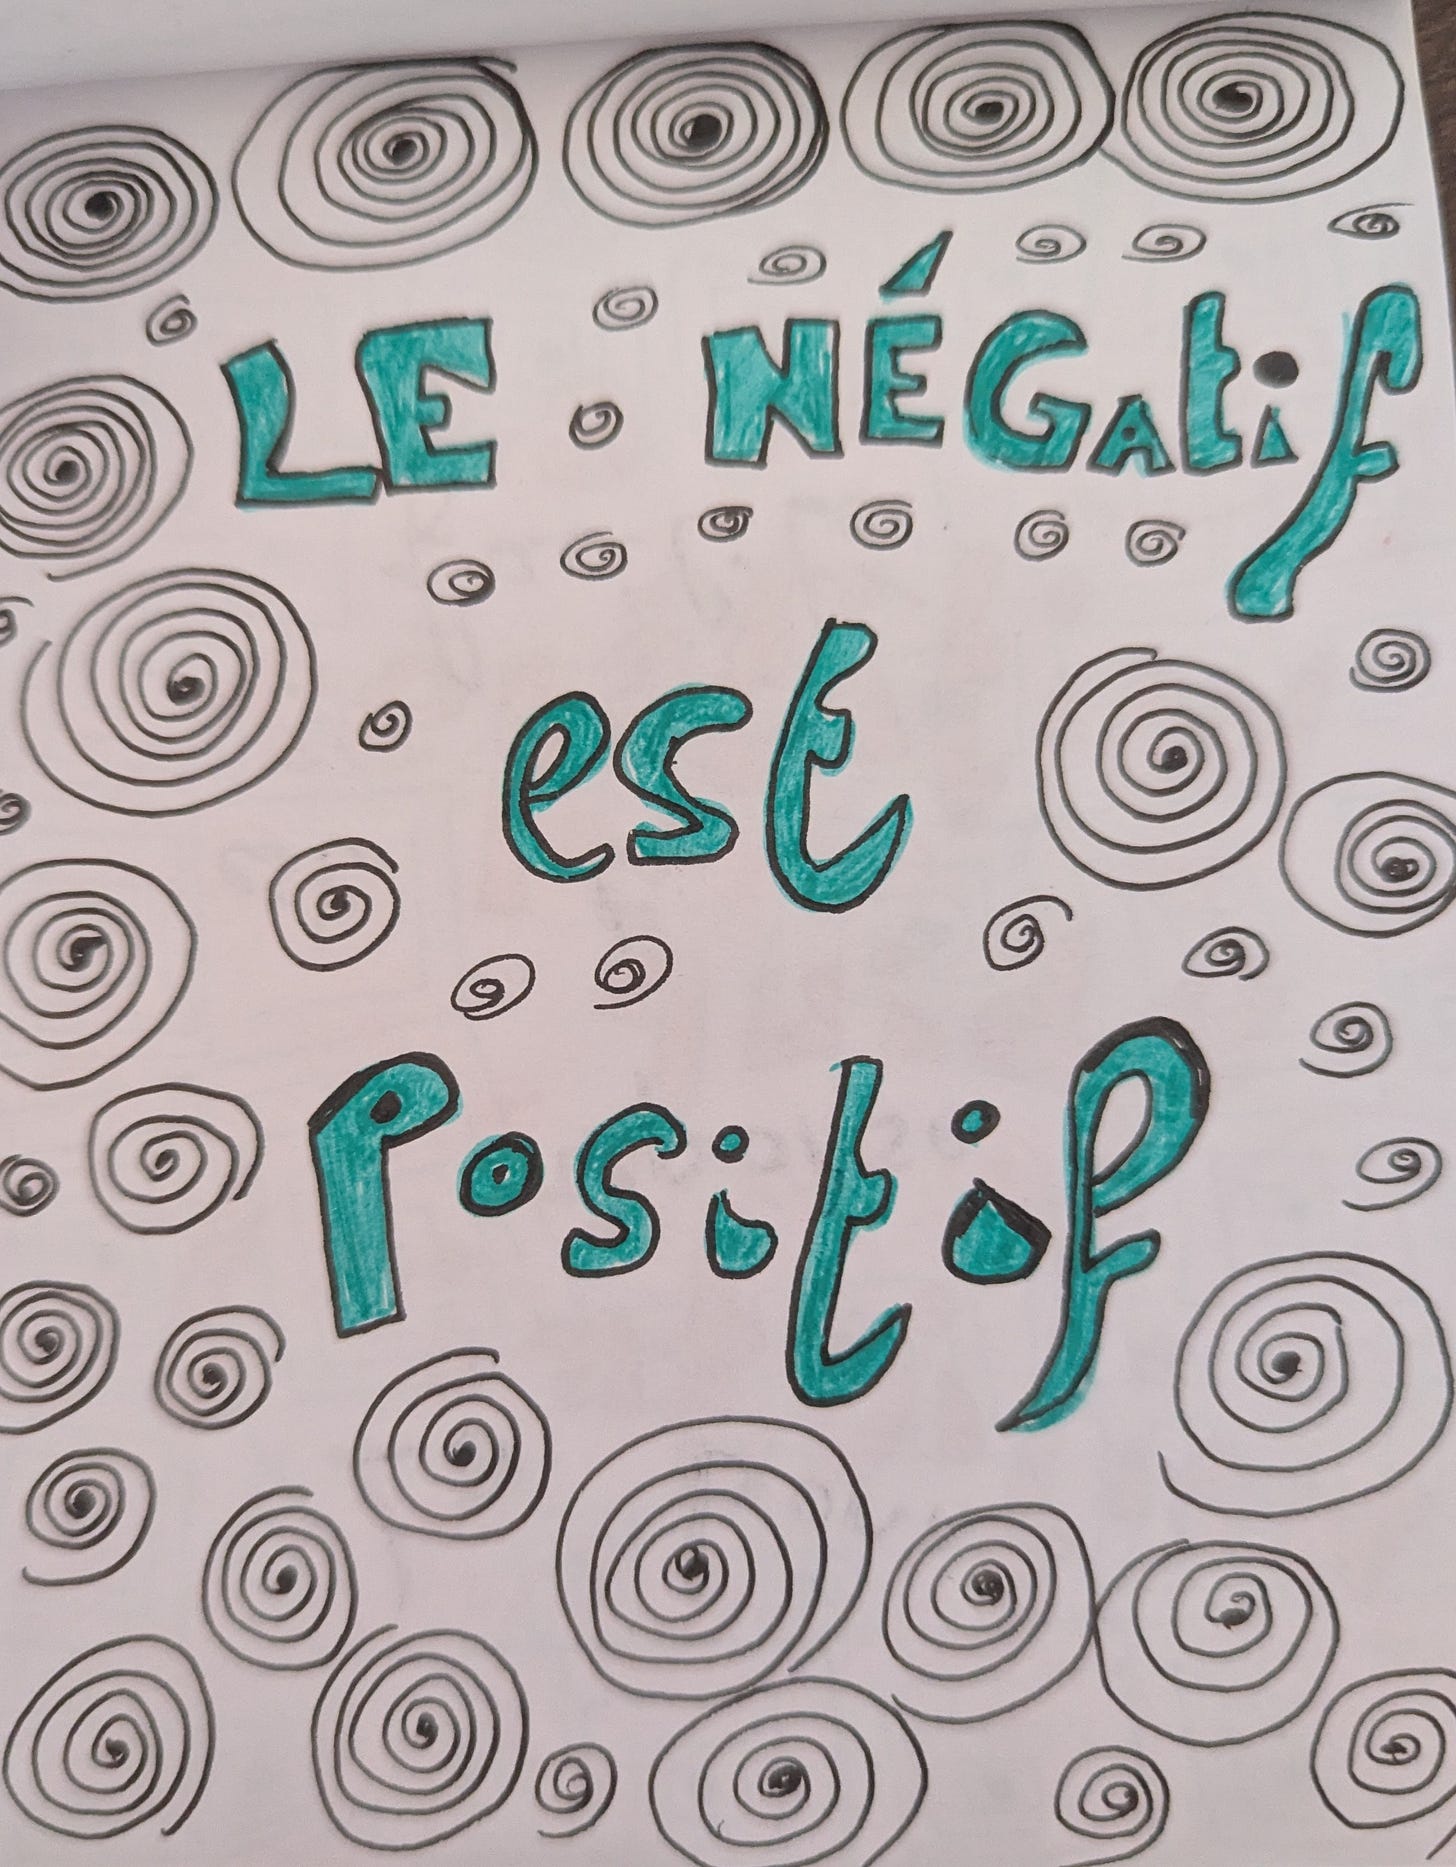 LE NÉGAtif
est
Positif